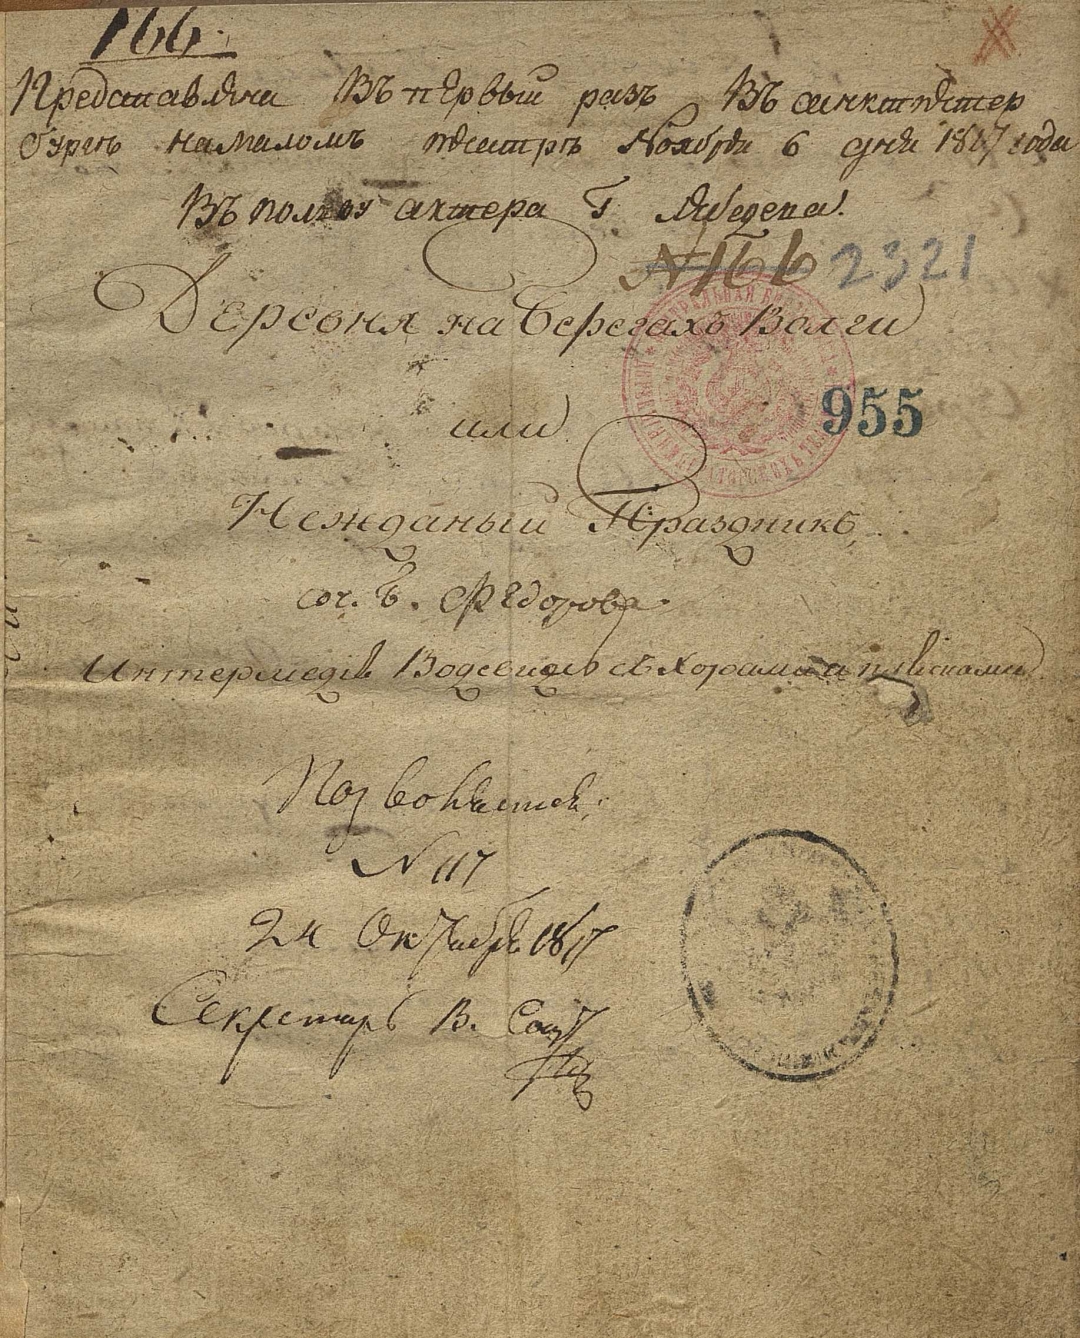 166.
Представлена Въ первый разъ Въ санктпетер
бургѣ на малом театрѣ Ноября 6 дня 1817 года
Въ ползу актера Г
№166 2321
Деревня на берегахъ Волги
955
или
Нежданый Праздникъ,
соч. Б. Федорова
Интермедія Водевиль съ Хорами и плясками
Позволяется.
N 117
24 Октября 1817
Секретарь В.